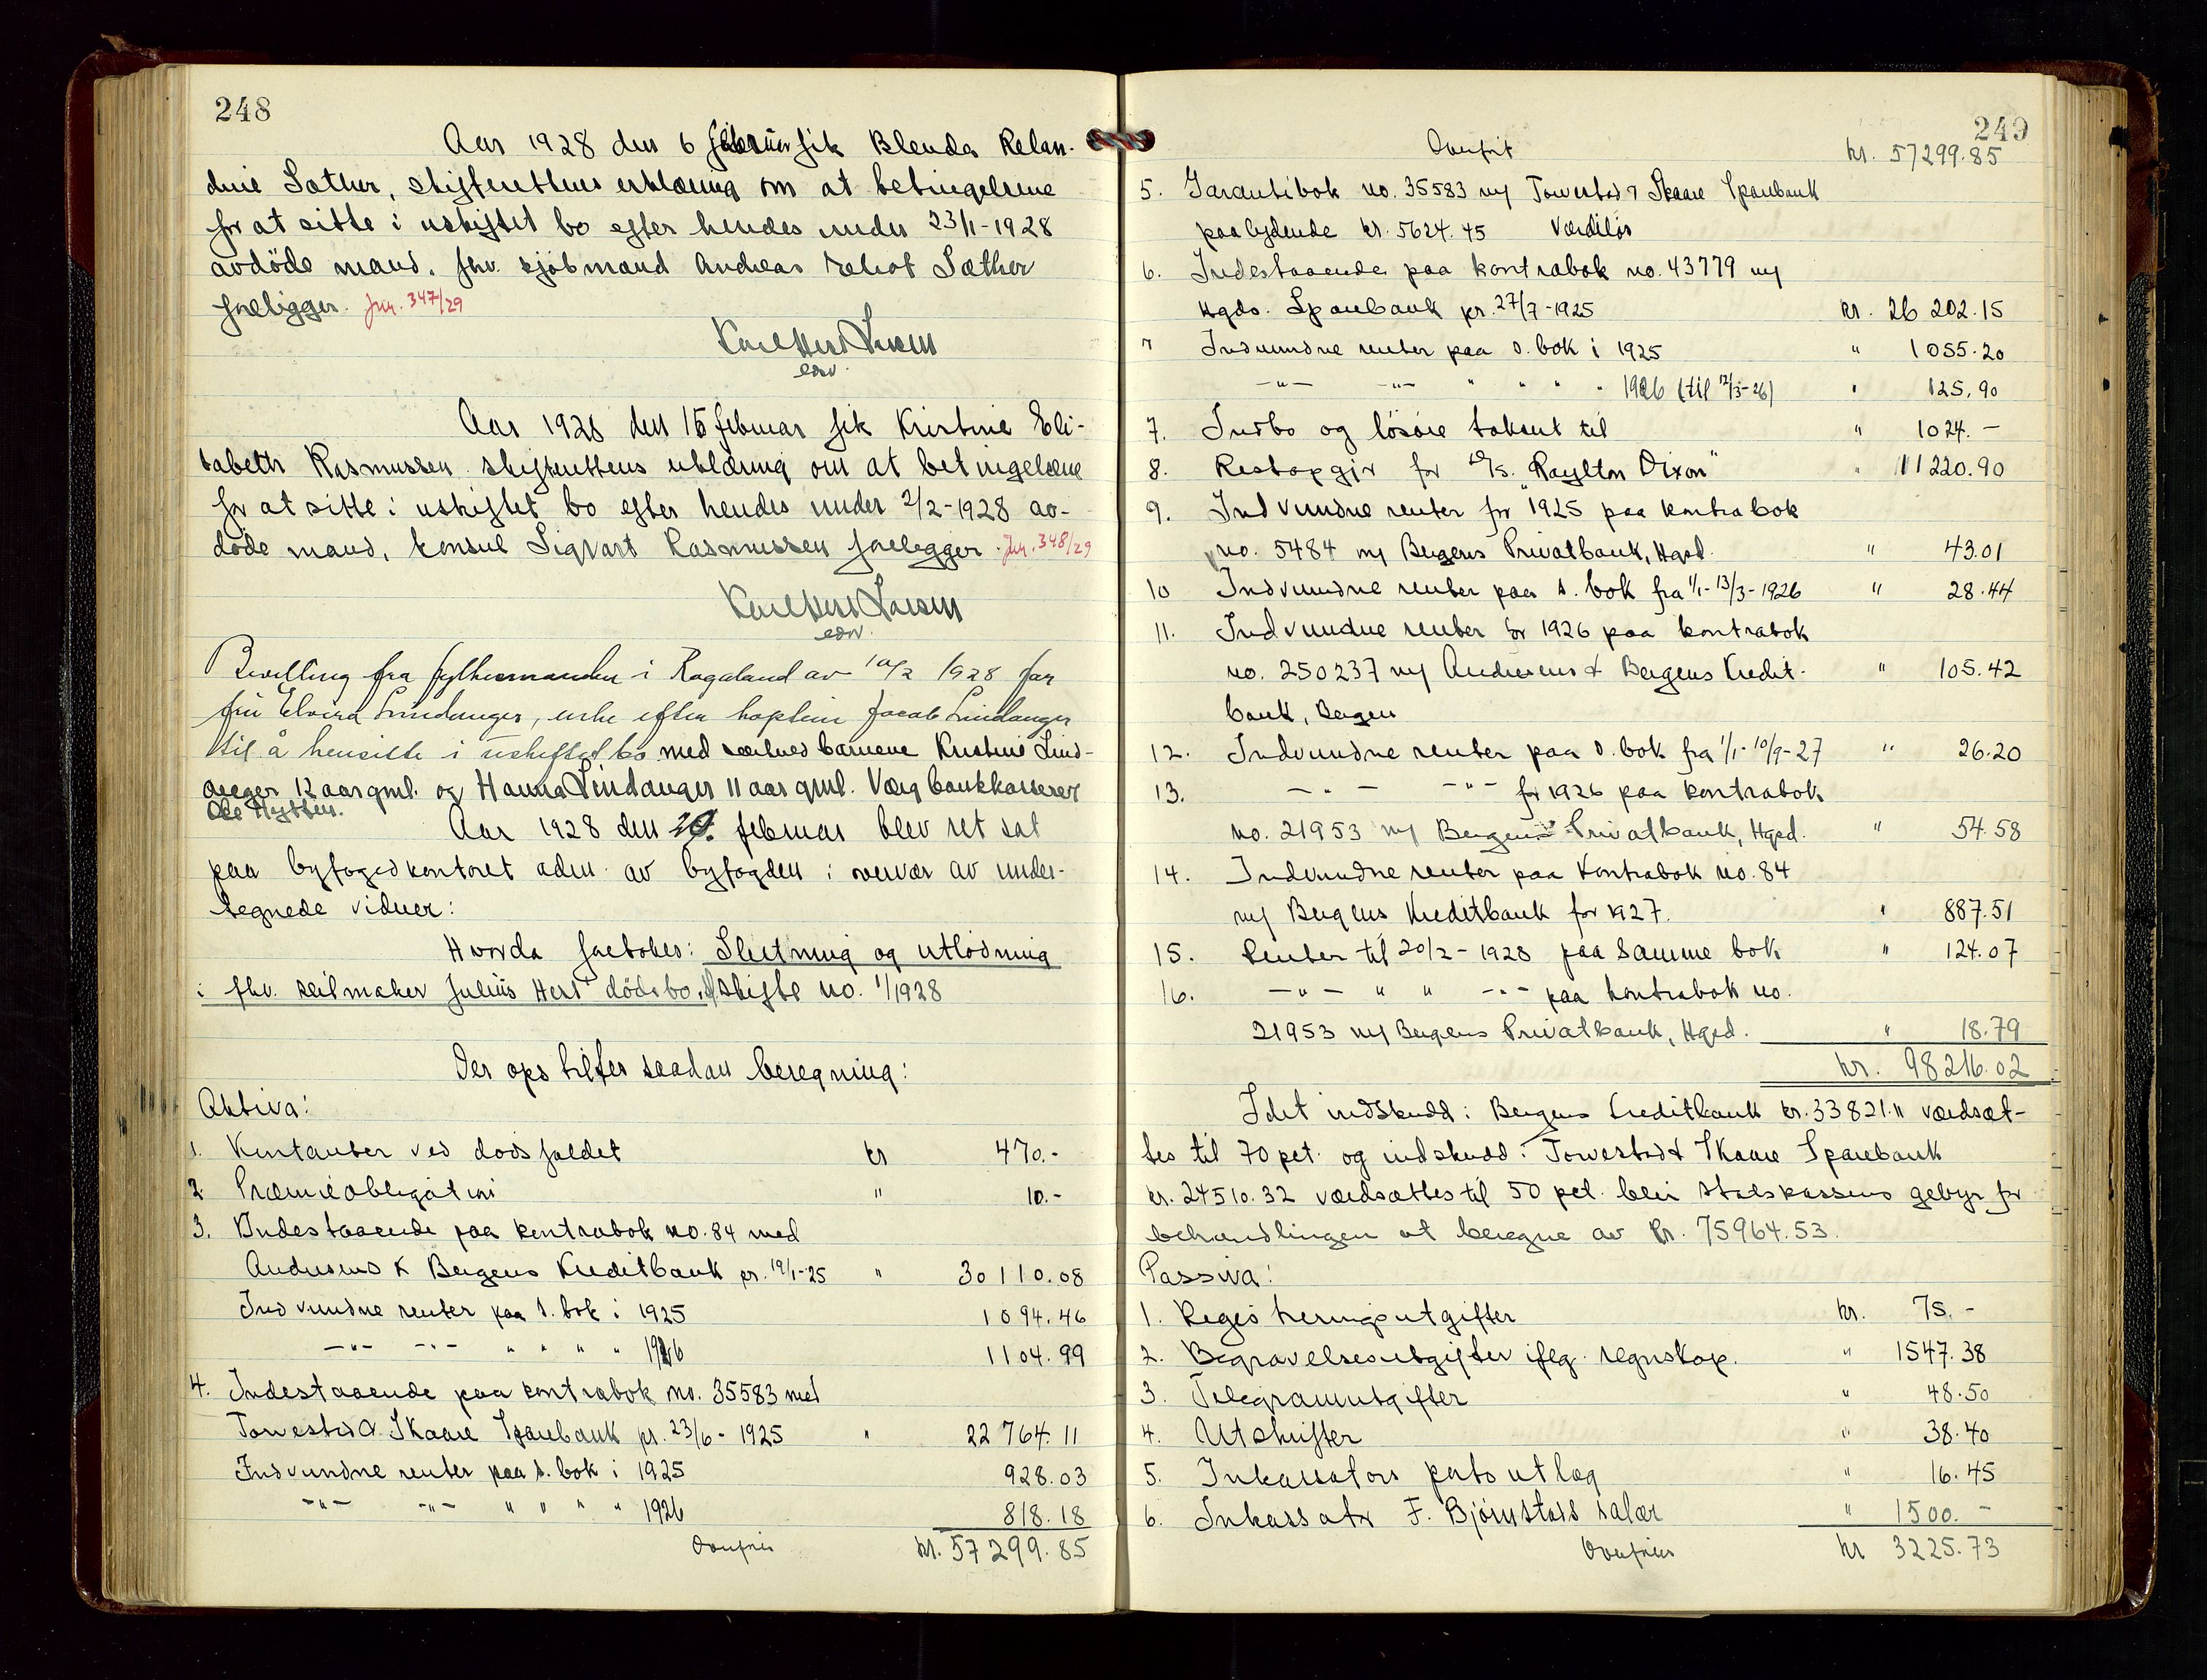 248
Aar 1928 den 6 februar fik Blenda Relan-
dine Sæther, skifterettens erklæring om at betingelserne
for at sitte i uskiftet bo efter hendes under 23/1-1928
avdöde mand, fhv. kjöbmand Andreas Sæther
foreligger. Jnr. 347/29
edv.
Aar 1928 den 15 februar fik Kristine Eli-
sabeth Rasmussen skifterettens erklæring om at betingelsene
for at sitte i uskiftet bo efter hendes under 2/2-1928 av-
döde mand, konsul Sigvart Rasmussen foreligger. Jnr. 348/29
edv.
Bevilling fra fylkesmanden i Rogaland av 10/2 1928 for
fru Elvira Lindanger, enke efter kaptein Jacob Lindanger
til å hensitte i uskiftet bo med særlivsbarnene Kristine Lind-
anger 12 aar gml. og Hanna Lindanger 11 aar gml. Værg bankkasserer
Ole Hytten.
Aar 1928 den 20. februar blev ret sat
paa byfogedkontoret adm. av byfogden i overvær av under-
tegnede vidner:
Hvorda foretokes: Slutning og utlodning
i fhv. seilmaker Julius Hers dödsbo, skifte no. 1/1928
Der opstilles saadan beregning:
Aktiva:
1. Kontanter ved dödsfaldet kr 470.-
2 Præmieobligation " 10.-
3. Indestaaende paa kontrabok no. 84 med
Andresens & Bergens Kreditbank pr. 19/1-25 " 30110.08
Indvundne renter paa s. bok i 1925 1094.46
-"- -"- " " " " 1926 1104.99
4. Indestaaende paa kontrabok no. 35583 med
Torvestad & Skaare Sparebank pr. 23/6 - 1925 " 22764.11
Indvundne renter paa s. bok i 1925 928.03
-"- -"- " " " " 1926 818.18
Overföres kr. 57299.85
249
Overfört kr. 57299.85
5. Garantibok no. 35583 m/ Torvestad & Skaare Sparebank
paalydende kr. 5624.45 Værdilös
6. Indestaaende paa kontrabok no. 43779 m/
Hgds. Sparebank pr. 27/7-1925 kr. 26202.15
Indvundne renter paa s. bok i 1925 " 1055.20
-"- -"- " " " " 1926 (til 12/3-26) " 125.90
7. Indbo og lösöre takset til " 1024.-
8. Restopgjör for D/S. "Raylton Dixon" " 11220.90
9. Indvundne renter for 1925 paa kontrabok
no. 5484 m/ Bergens Privatbank, Hgsd. " 43.01
10 Indvundne renter paa s. bok fra 1/1-13/3-1926 " 28.44
11. Indvundne renter for 1926 paa kontrabok
no. 250237 m/ Andresens & Bergens Kredit- " 105.42
bank, Bergen
12. Indvundne renter paa s. bok fra 1/1-10/9-27 " 26.20
13. -"- -"- for 1926 paa kontrabok
no. 21953 m/ Bergens Privatbank, Hgsd. " 54.58
14. Indvundne renter paa kontrabok no. 84
m/ Bergens Kreditbank for 1927. " 887.51
15. Renter til 20/2 - 1928 paa samme bok " 124.07
16. -"- " " -"- paa kontrabok no.
21953 m/ Bergens Privatbank, Hgsd. " 18.79
kr. 98216.02
Idet indskudd i Bergens Kreditbank kr. 33821.11 værdsæt-
tes til 70 pct. og indskudd i Torvestad & Skaare Sparebank
kr. 24510.32 værdsættes til 50 pct. blir statskassens gebyr for
behandlingen at beregne av kr. 75964.53.
Passiva:
1. Registreringsutgifter kr. 75.-
2. Begravelsesutgifter iflg. regnskap. " 1547.38
3. Telegramutgifter " 48.50
4. Utskrifter " 38.40
5. Inkassators porto utlæg " 16.45
6. Inkassator F. Björnstads salær " 1500.-
Overföres kr 3225.73